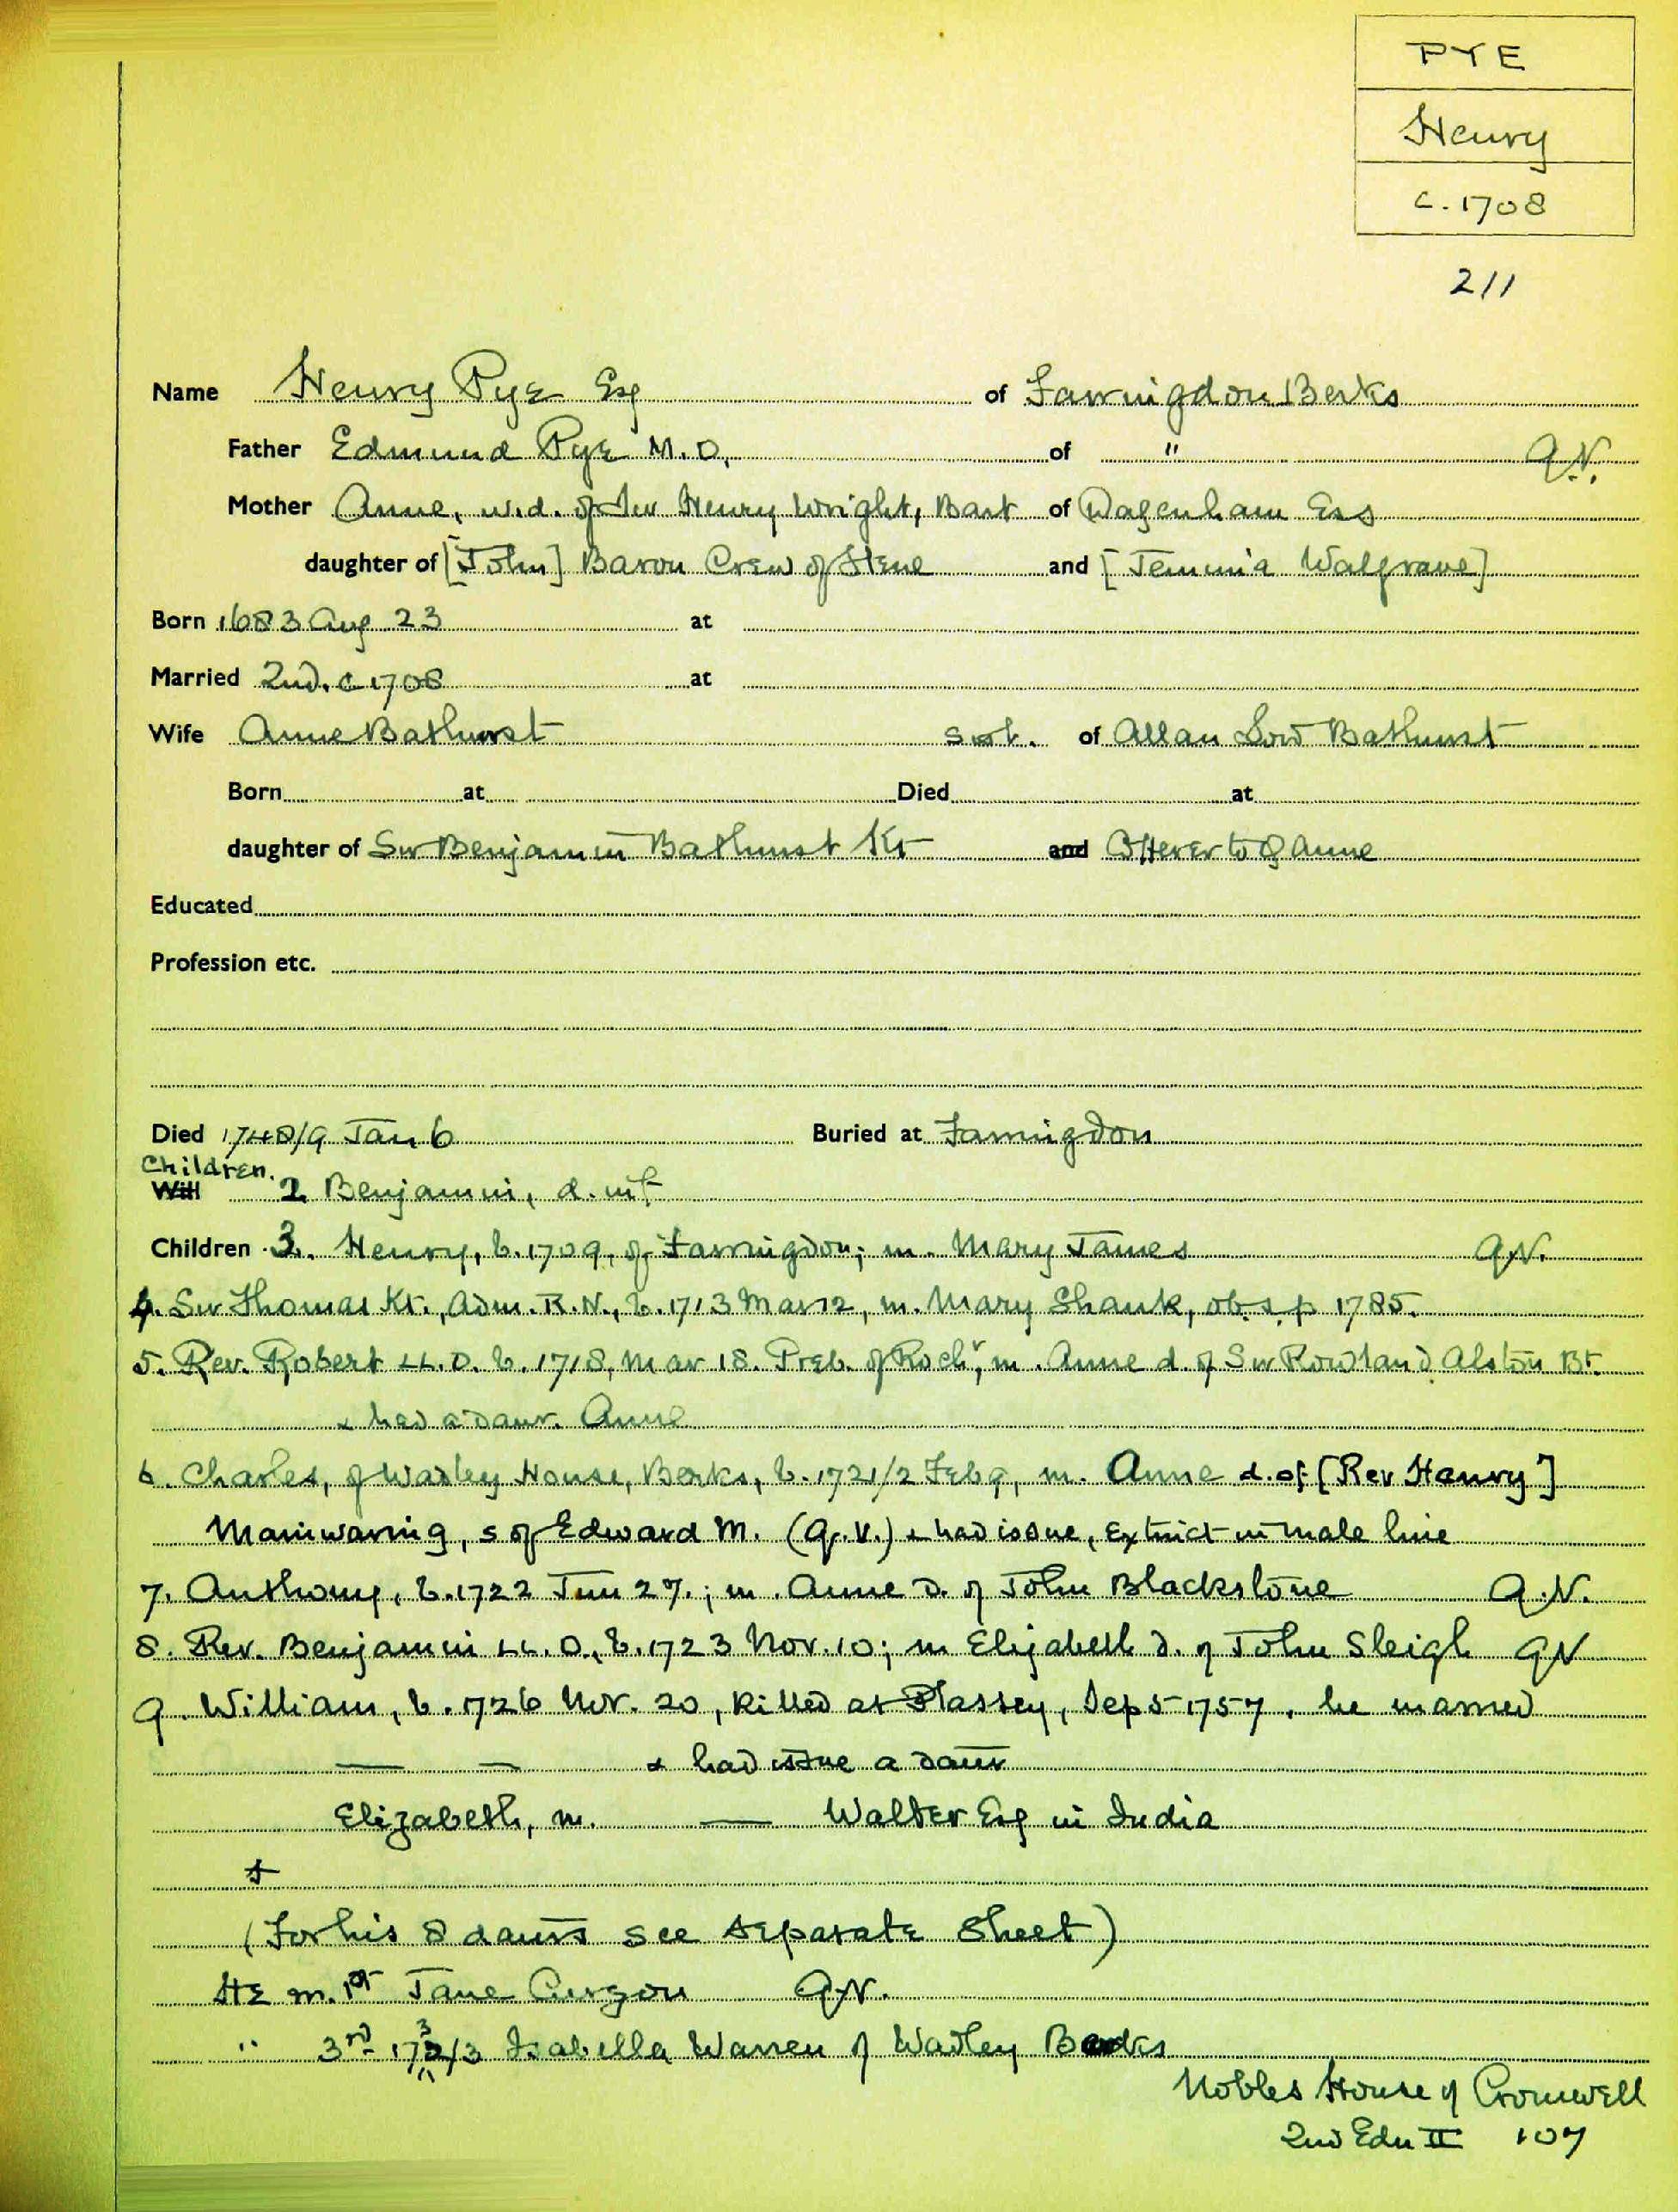 PYE
Henry
c. 1708
211
Name Henry Pye Esq of Farringdon Berks
Father Edmund Pye M.D. of " Q.V.
Mother Anne, w.d. of Sir Henry Wright, Bart of Dagenham Ess
daughter of [John] Baron Crew of Stene and [Jemima Walgrave]
Born 1683 Aug 23 at
Married 2nd. c 1708 at
Wife Anne Bathurst sist. of Allan Lord Bathurst
Born at Died at
daughter of Sir Benjamin Bathurst Kt and to Q Anne
Educated
Profession etc.
Died 1748/9 Jan 6 Buried at Farringdon
Children.
Will 2 Benjamin, d. inf
Children 3. Henry, b. 1709, of Farringdon; m. Mary James Q.V.
4. Sir Thomas Kt., Adm. R.N., b. 1713 Mar 12, m. Mary Shank, ob. s. p 1785.
5. Rev. Robert LL.D. b. 1718, Mar 18. Preb. of Rochr, m. Anne d. of Sir Rowland Alston Bt.
& had a daur. Anne
6. Charles, of Wadley House, Berks, b. 1721/2 Feb 9, m. Anne d. of [Rev Henry]
Mainwaring, s of Edward M. (q.v.) & had issue, extinct in male line
7. Anthony, b. 1722 Jun 27.; m. Anne d. of John Blackstone Q.V.
8. Rev. Benjamin LL.D., b. 1723 Nov. 10; m Elizabeth d. of John Sleigh QV
9. William, b. 1726 Nov. 20, killed at Plassey, Sep 5 1757. he married
— — & had issue a daur
Elizabeth, m. — Walter Esq in India
+
(For his 8 daurs see separate sheet)
He m. 1st Jane Curzon Q.V.
" 3rd 1732/3 Isabella Warren of Wadley Berks
Nobles House of Cromwell
2nd Edn II 107